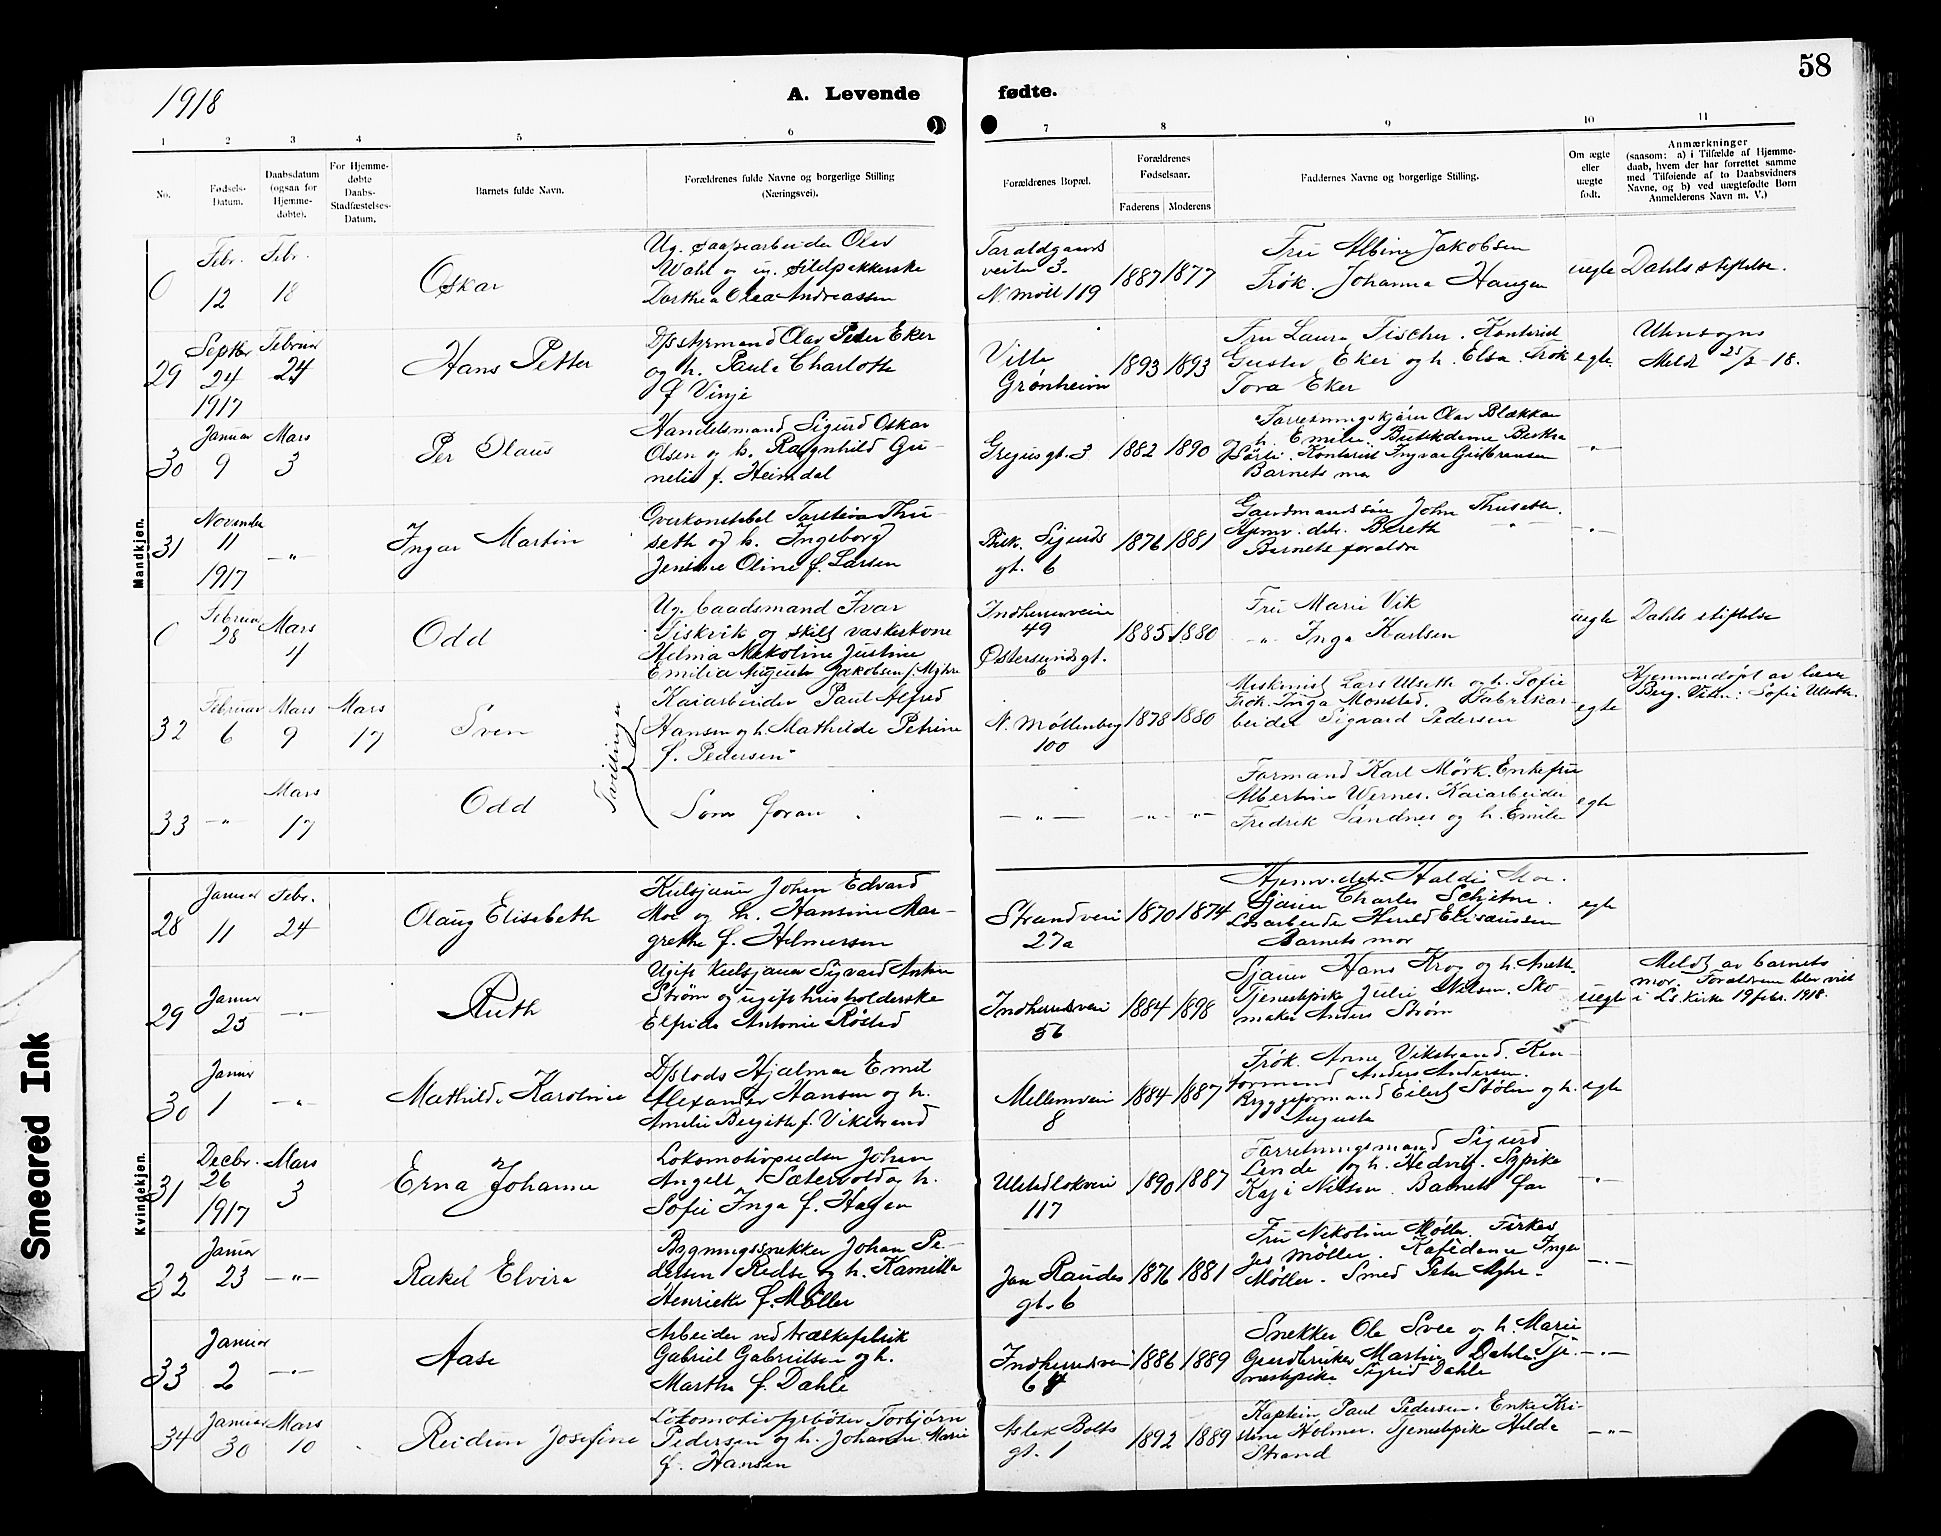 58
1918
A. Levende fødte.
1 2 3 4 5 6 7 8 9 10 11
No.
Fødsels-
Datum.
Daabsdatum
(ogsaa for
Hjemme-
døbte).
For Hjemme-
døbte
Daabs-
Stadfæstelses-
Datum.
Barnets fulde Navn.
Forældrenes fulde Navne og borgerlige Stilling
(Næringsvei).
Forældrenes Bopæl.
Forældrenes
Fødselsaar.
Faderens Moderens
Faddernes Navne og borgerlige Stilling.
Om ægte
eller
uægte
født.
Anmærkninger
(saasom: a) i Tilfælde af Hjemme-
daab, hvem der har forrettet samme
med Tilføiende af to Daabsvidners
Navne, og b) ved uægtefødte Børn
Anmelderens Navn m. V.)
Mandkjøn.
0
Febr.
12
Febr.
18
Oskar
Ug. saapearbeider Olav
Wahl og ug. sildpakkerske
Dorthea Olea Andreassen
Taraldgaards
veiten 3.
N. Möll 119
1887 1877
Fru Albine Jakobsen
Frök. Johanna Haugen
uegte
Dahls stiftelse.
29
Septbr
24
1917
Februar
24
Hans Petter
D/s styrmand Olav Peter Eker
og h. Paula Charlotte
f. Vinje
Villa
Grønheim
1893 1893
Fru Laura Fischer. Kontorist
Gustav Eker og h. Elsa. Frøk
Tora Eker
egte.
Utensogns
Meldt 25/2 - 18.
30
Januar
9
Mars
3
Per Olaus
Handelsmand Sigurd Oskar
Olsen og h. Ragnhild Gu-
nelie f. Heimdal
Gregus gt. 3
1882 1890
Forretningskjörer Olav Blekkan
h. Emilie. Butikdame Bertha
Sörli. Kontorist Ingvar Guldbransen
Barnets mor
-"-
31
November
11
1917
-"-
Ingar Martin
Overkonstabel Torstein Thu-
seth og h. Ingeborg
Jensine Oline f. Larsen
Bisk. Sigurds
gt. 6
1876 1881
Gaardmandssön John Thuseth.
Hjemv. dtr. Bereth -"-
Barnets foraldre
-"-
0
Februar
28
Mars
4
Odd
Ug. baadsmand Ivar
Fiskvik og skilt vaskekone
Helma Nekoline Justine
Emilie Augusta Jakobsen f. Myhre
Indherredsveien
49
Østersundsgt.
6
1885 1880
Fru Marie Vik
-"- Inga Karlsen
uegte
Dahls stiftelse
32
Februar
6
Mars
9
Mars
17
Sven
Tvillinger
Kaiarbeider Paul Alfred
Hansen og h. Mathilde Petrine
f. Pedersen
N. Möllenberg
100
1878 1880
Maskinist Lars Ulseth og h. Sofie
Frök. Inga Monsted. Fabrikar-
beider Sigvard Pedersen
egte
Hjemmedøpt av
Berg. Vidn: Sofie Ulseth.
33
-"-
Mars
17
Odd
Som foran
-"-
-"- -"-
Formand Karl Mörk. Enkefru
Albertine Wernes. Kaiarbeider
Fredrik Sandnes og h. Emilie
egte
Kvindekjøn.
28
Januar
11
Febr.
24
Olaug Elisabeth
Kulsjauer Johan Edvard
Moe og h. Hansine Mar-
grethe f. Helmersen
Strandveien
27a
1870 1874
Hjemv. dtr. Haldis Moe.
Sjauer Charles Schjetne.
Losarbeider Harald Eliasussen
Barnets mor
egte
29
Januar
25
-"-
Ruth
Ugift kulsjauer Sigvard Anton
Strøm og ugift husholderske
Elfrida Antonie Røstad
Indherredsveien
56
1884 1898
Sjauer Hans Krog og h. Anette.
Tjenestpike Julie Nilsen. Sko
maker Anders Strøm
uegte
Meldt av barnets
mor. Foraldrene blev viet
i Ls. kirke 19 febr. 1918.
30
Januar
1
-"-
Mathilde Karoline
D/s lods Hjalmar Emil
Alexander Hansen og h.
Amelie Bergitte f. Vikstrand
Mellemveien
8
1884 1887
Frök. Anne Vikstrand.
formand Anders Andersen.
Bryggeformand Eilert Stölen og h.
Augusta
egte
31
Decbr.
26
1917
Mars
3
Erna Johanne
Lokomotivpudser Johan
Angell Sætervold og h.
Sofie Inga f. Hagen
Ulstadlokveien
117
1890 1887
Forretningsmand Sigurd
Lende og h. Hedvig. Sypike
Kaja Nilsen. Barnets far
-"-
32
Januar
23
-"-
Rakel Elvira
Bygningssnekker Johan Pe-
dersen Redse og h. Kamilla
Henriette f. Møller
Jon Raudes
gt. 6
1876 1881
Fru Nekoline Møller. Firkas
Jes Møller. Kafédame Inga
Møller. Smed Peter Myhre.
-"-
33
Januar
2
-"-
Aase
Arbeider ved træskefabrik
Gabriel Gabrielsen og h.
Martha f. Dahle
Indherredsveien
64
1886 1889
Snekker Ole Svee og h. Marie
Gaardbruker Martin Dahle. Tje-
nestepike Sigrid Dahle
-"-
34
Januar
30
Mars
10
Reidun Josefine
Lokomotivfyrbøter Torbjörn
Pedersen og h. Johanne Marie
f. Hansen
Aslak Bolts
gt. 1
1892 1889
Kaptein Paul Pedersen. Enke Kri-
stine Holmer. Tjenestpike Hilda
Strand
-"-
Smeared Ink